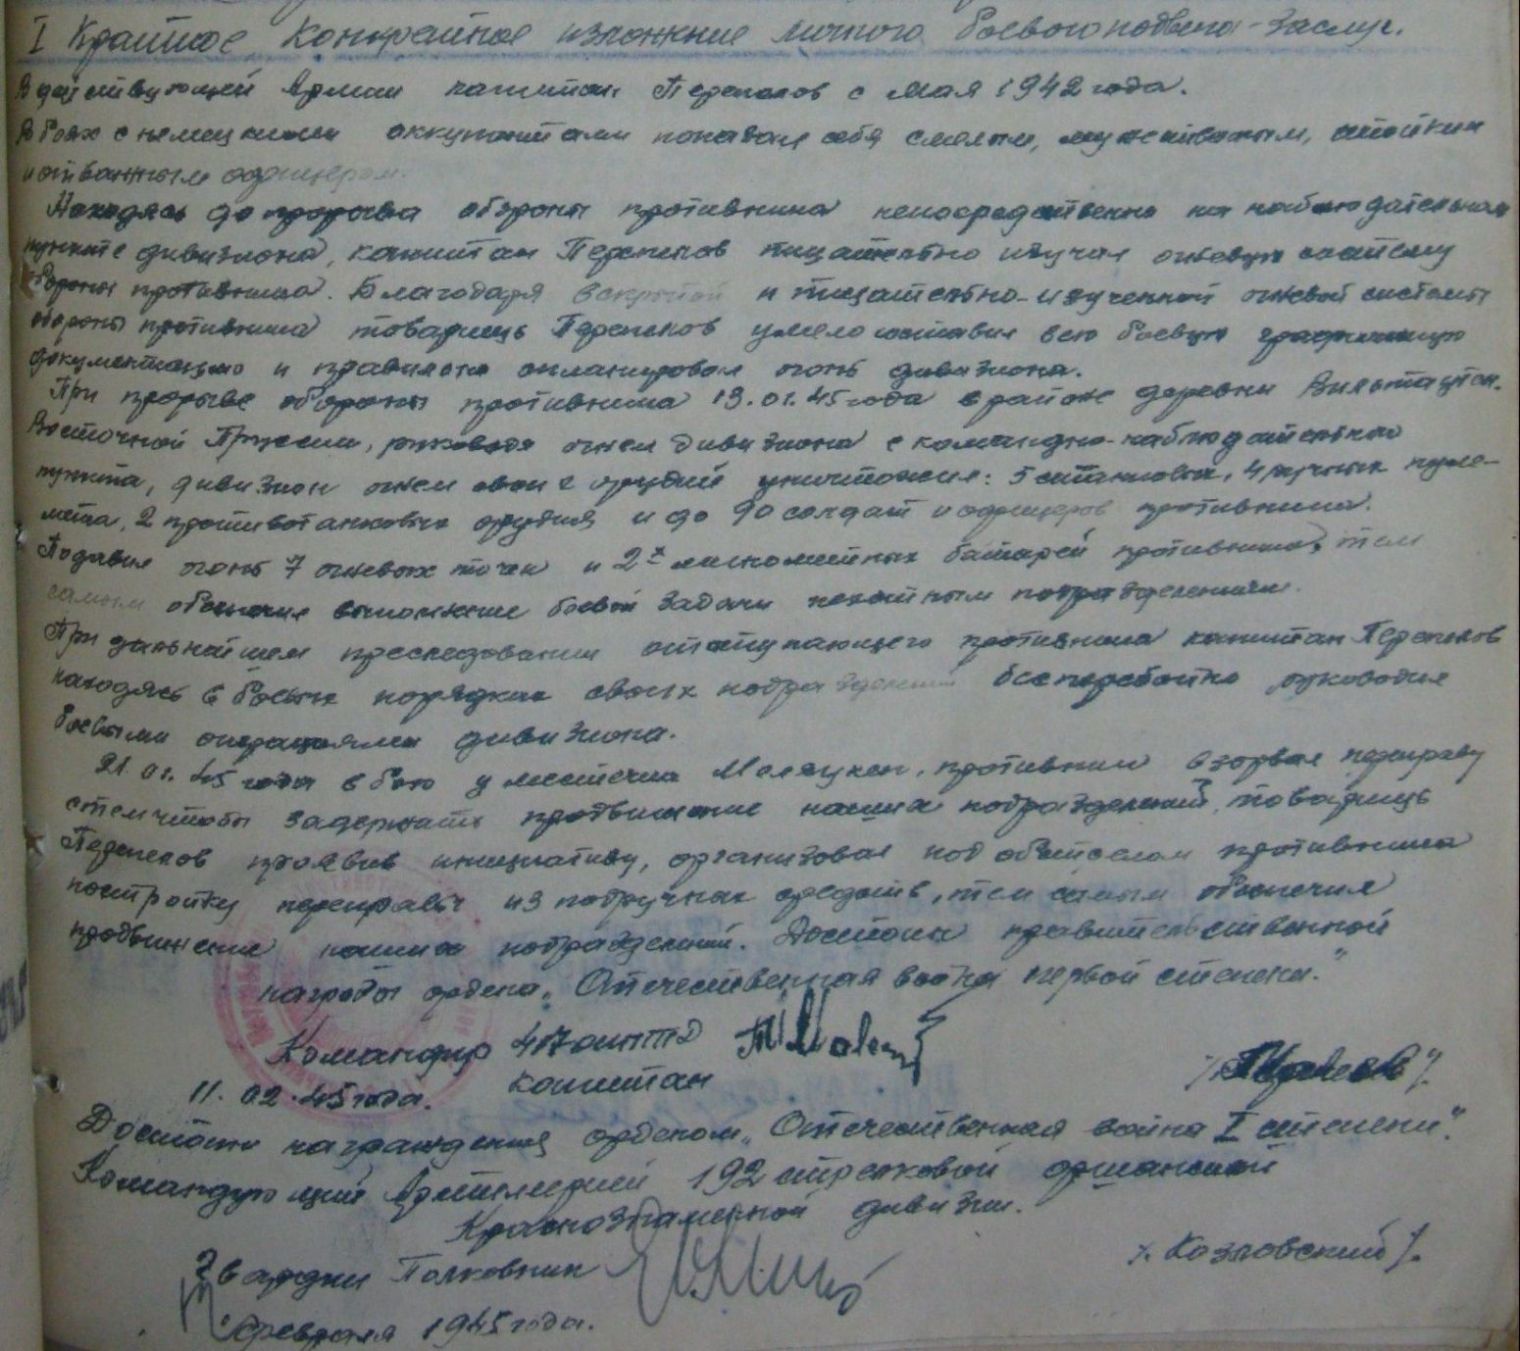 I Краткое конкретное изложение личного боевого подвига-заслуг.
В действующей Армии капитан Перепелов с мая 1942 года.
В боях с немецкими оккупантами показал себя смелым, мужественным, стойким
и отважным офицером.
Находясь до прорыва обороны противника непосредственно на наблюдательном
пункте дивизиона, капитан Перепелов тщательно изучал огневую систему
обороны противника. Благодаря вскрытой и тщательно-изученной огневой системы
обороны противника товарищ Перепелов умело составил всю боевую графическую
документацию и правильно спланировал огонь дивизиона.
При прорыве обороны противника 13.01.45 года в районе деревни
Восточной Пруссии, руководя огнем дивизиона с командно-наблюдательного
пункта, дивизион огнем своих орудий уничтожил: 5 станковых, 4 ручных пуле-
мета, 2 противотанковых орудия и до 90 солдат и офицеров противника.
Подавил огонь 7 огневых точек и 2х минометных батарей противника, тем
самым обеспечил выполнение боевой задачи пехотным подразделениям.
При дальнейшем преследовании отступающего противника капитан Перепелов
находясь в боевых порядках своих подразделений бесперебойно руководил
боевыми операциями дивизиона.
21.01.45 года в бою у местечка противник взорвал переправу
с тем чтобы задержать продвижение наших подразделений, товарищ
Перепелов проявив инициативу, организовал под обстрелом противника
постройку переправы из подручных средств, тем самым обеспечил
продвижение наших подразделений. Достоин правительственной
награды ордена „Отечественная война первой степени."
Командир 417 оиптд
капитан
11.02.45 года.
Достоин награждения орденом „Отечественная война I степени".
Командующий Артиллерией 192 стрелковой оршанской
Краснознаменной дивизии.
Гвардии Полковник /Козловский/.
Февраля 1945 года.